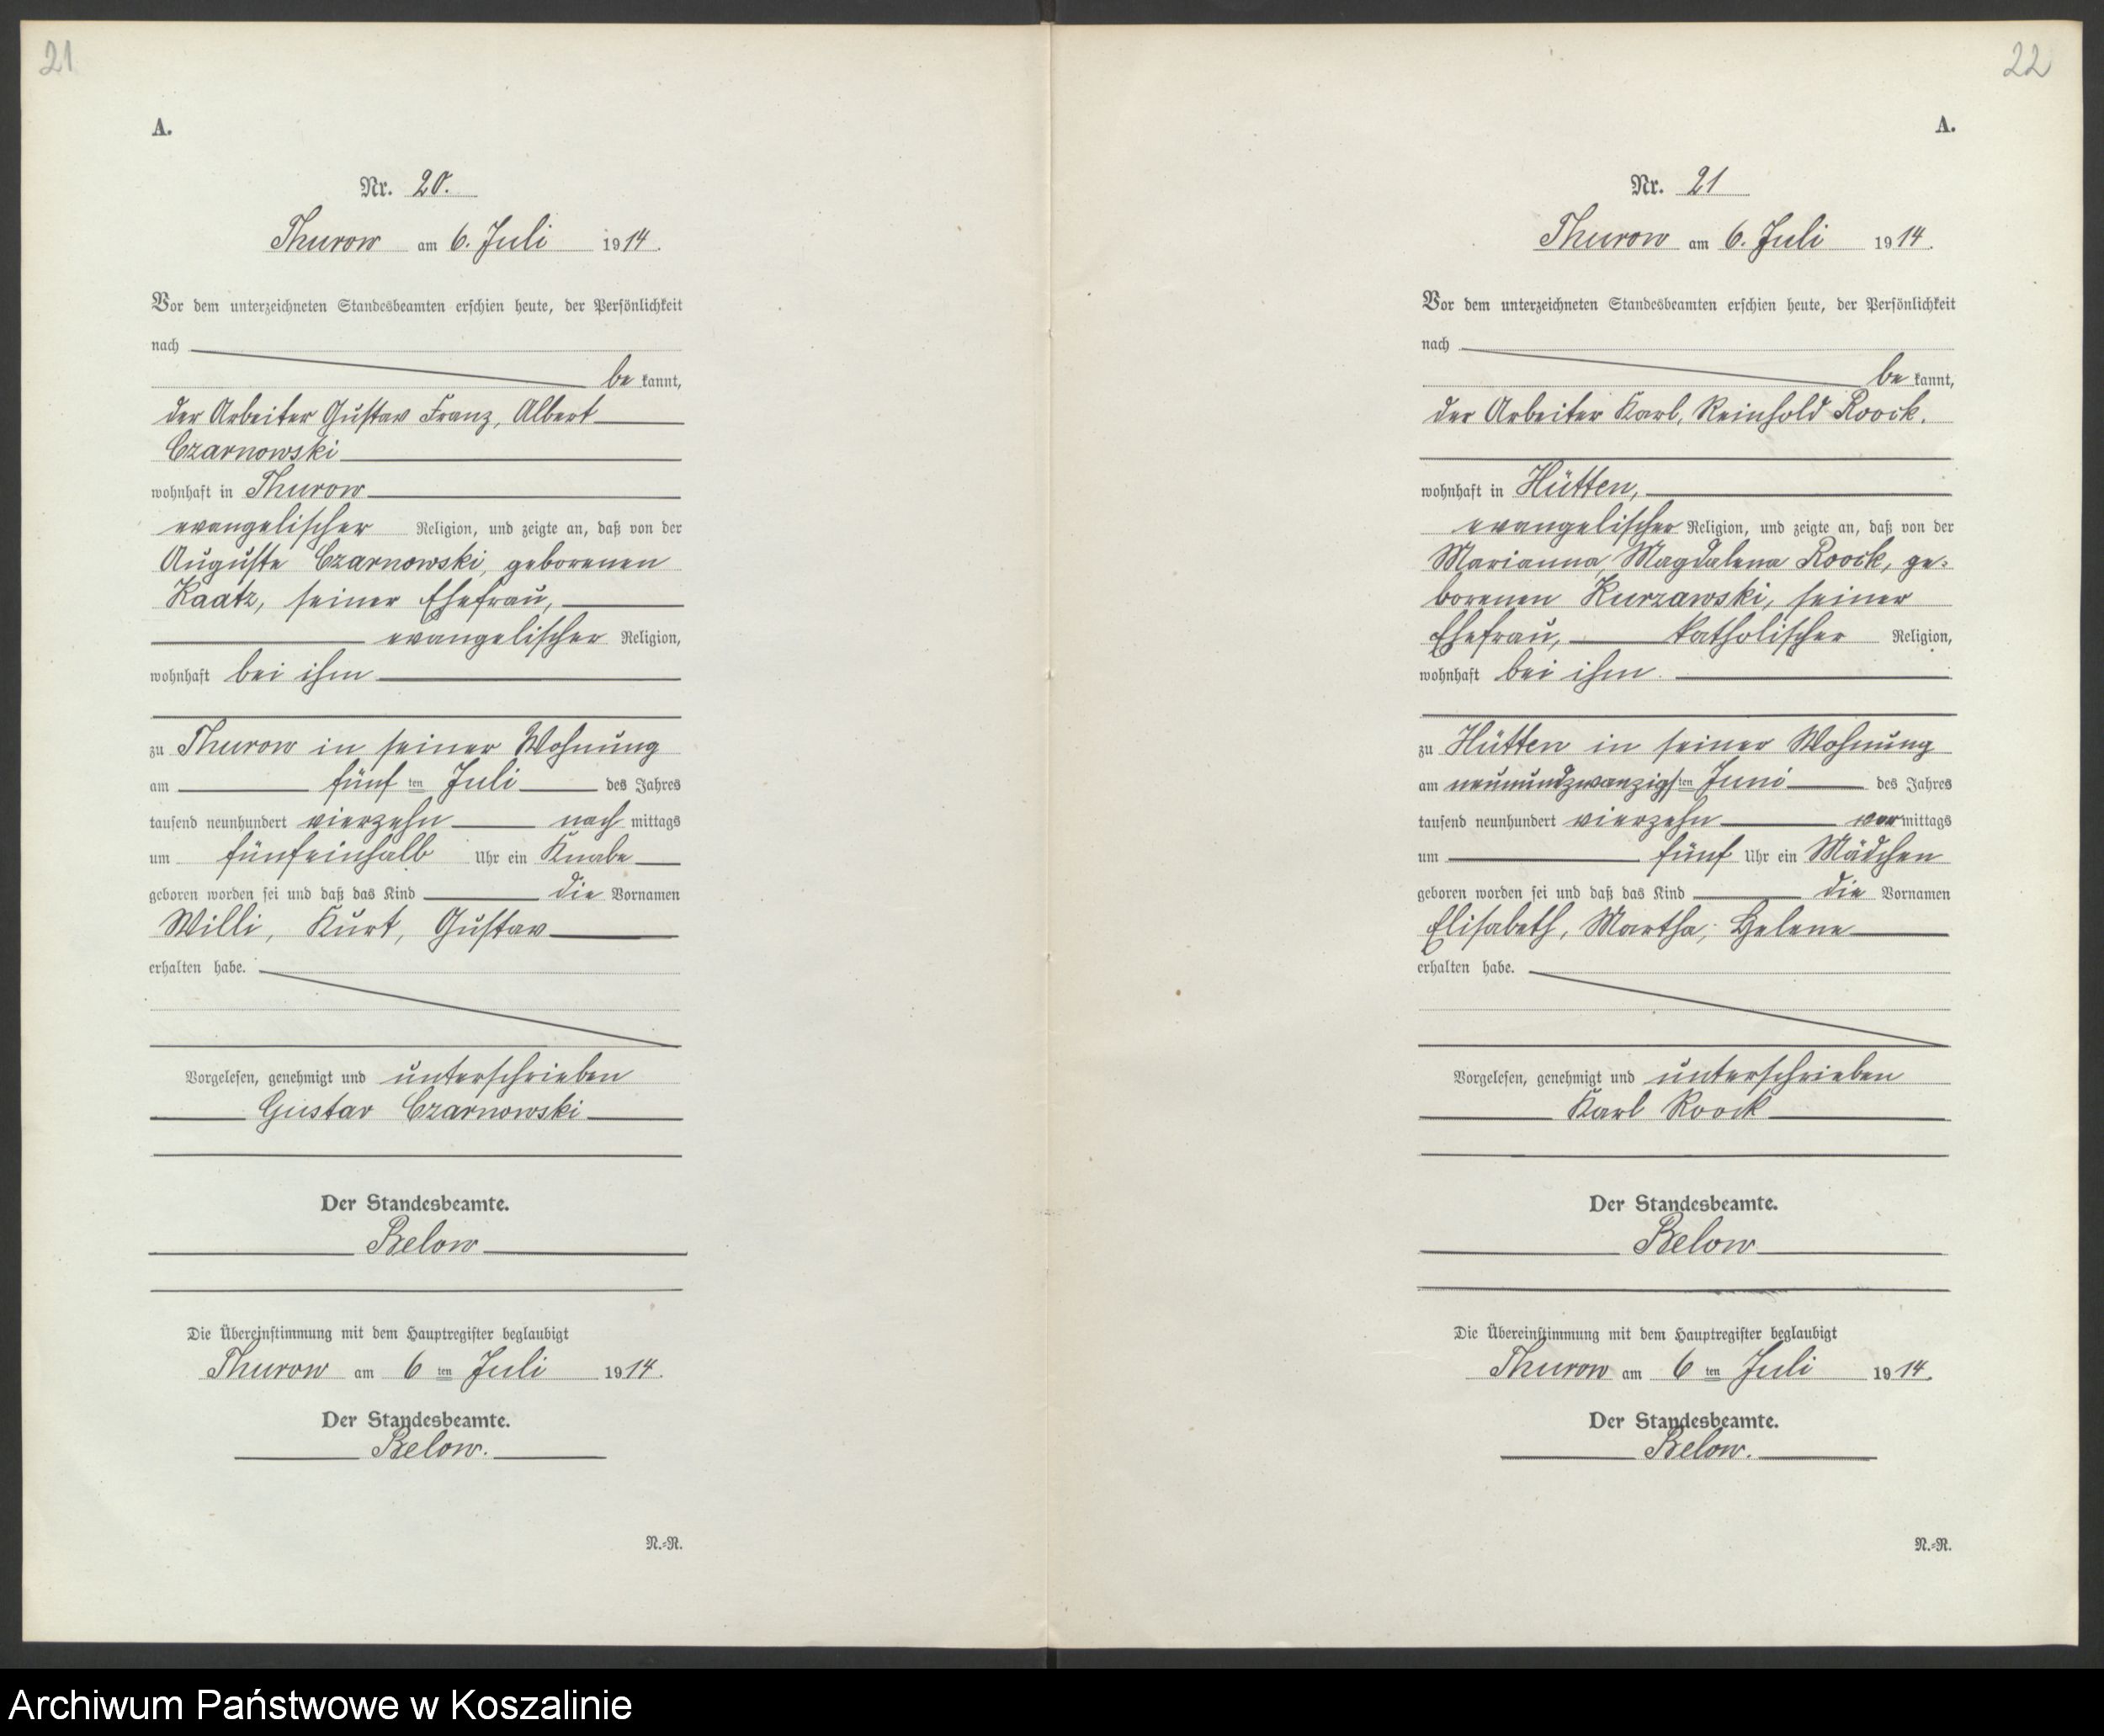 21
A.
Nr. 20.
Thurow am 6. Juli 1914.
Vor dem unterzeichneten Standesbeamten erschien heute, der Persönlichkeit
nach
be kannt,
der Arbeiter Gustav Franz, Albert
Czarnowski
wohnhaft in Thurow
evangelischer Religion, und zeigte an, daß von der
Auguste Czarnowski, geborenen
Kaatz, seiner Ehefrau,
evangelischer Religion,
wohnhaft bei ihm
zu Thurow in seiner Wohnung
am fünf ten Juli des Jahres
tausend neunhundert vierzehn nach mittags
um fünfeinhalb Uhr ein Knabe
geboren worden sei und daß das Kind die Vornamen
Willi, Kurt, Gustav
erhalten habe.
Vorgelesen, genehmigt und unterschrieben
Gustav Czarnowski
Der Standesbeamte.
Below
Die Übereinstimmung mit dem Hauptregister beglaubigt
Thurow am 6 ten Juli 1914.
Der Standesbeamte.
Below.
N.=R.
22
A.
Nr. 21
Thurow am 6. Juli 1914.
Vor dem unterzeichneten Standesbeamten erschien heute, der Persönlichkeit
nach
be kannt,
der Arbeiter Karl, Reinhold Roock.
wohnhaft in Hütten,
evangelischer Religion, und zeigte an, daß von der
Marianna, Magdalena Roock, ge=
borenen Kurzawski, seiner
Ehefrau, katholischer Religion,
wohnhaft bei ihm.
zu Hütten in seiner Wohnung
am neunundzwanzigsten Juni des Jahres
tausend neunhundert vierzehn vormittags
um fünf Uhr ein Mädchen
geboren worden sei und daß das Kind die Vornamen
Elisabeth, Martha, Helene
erhalten habe.
Vorgelesen, genehmigt und unterschrieben
Karl Roock
Der Standesbeamte.
Below
Die Übereinstimmung mit dem Hauptregister beglaubigt
Thurow am 6 ten Juli 1914.
Der Standesbeamte.
Below.
N.=R.
Archiwum Państwowe w Koszalinie